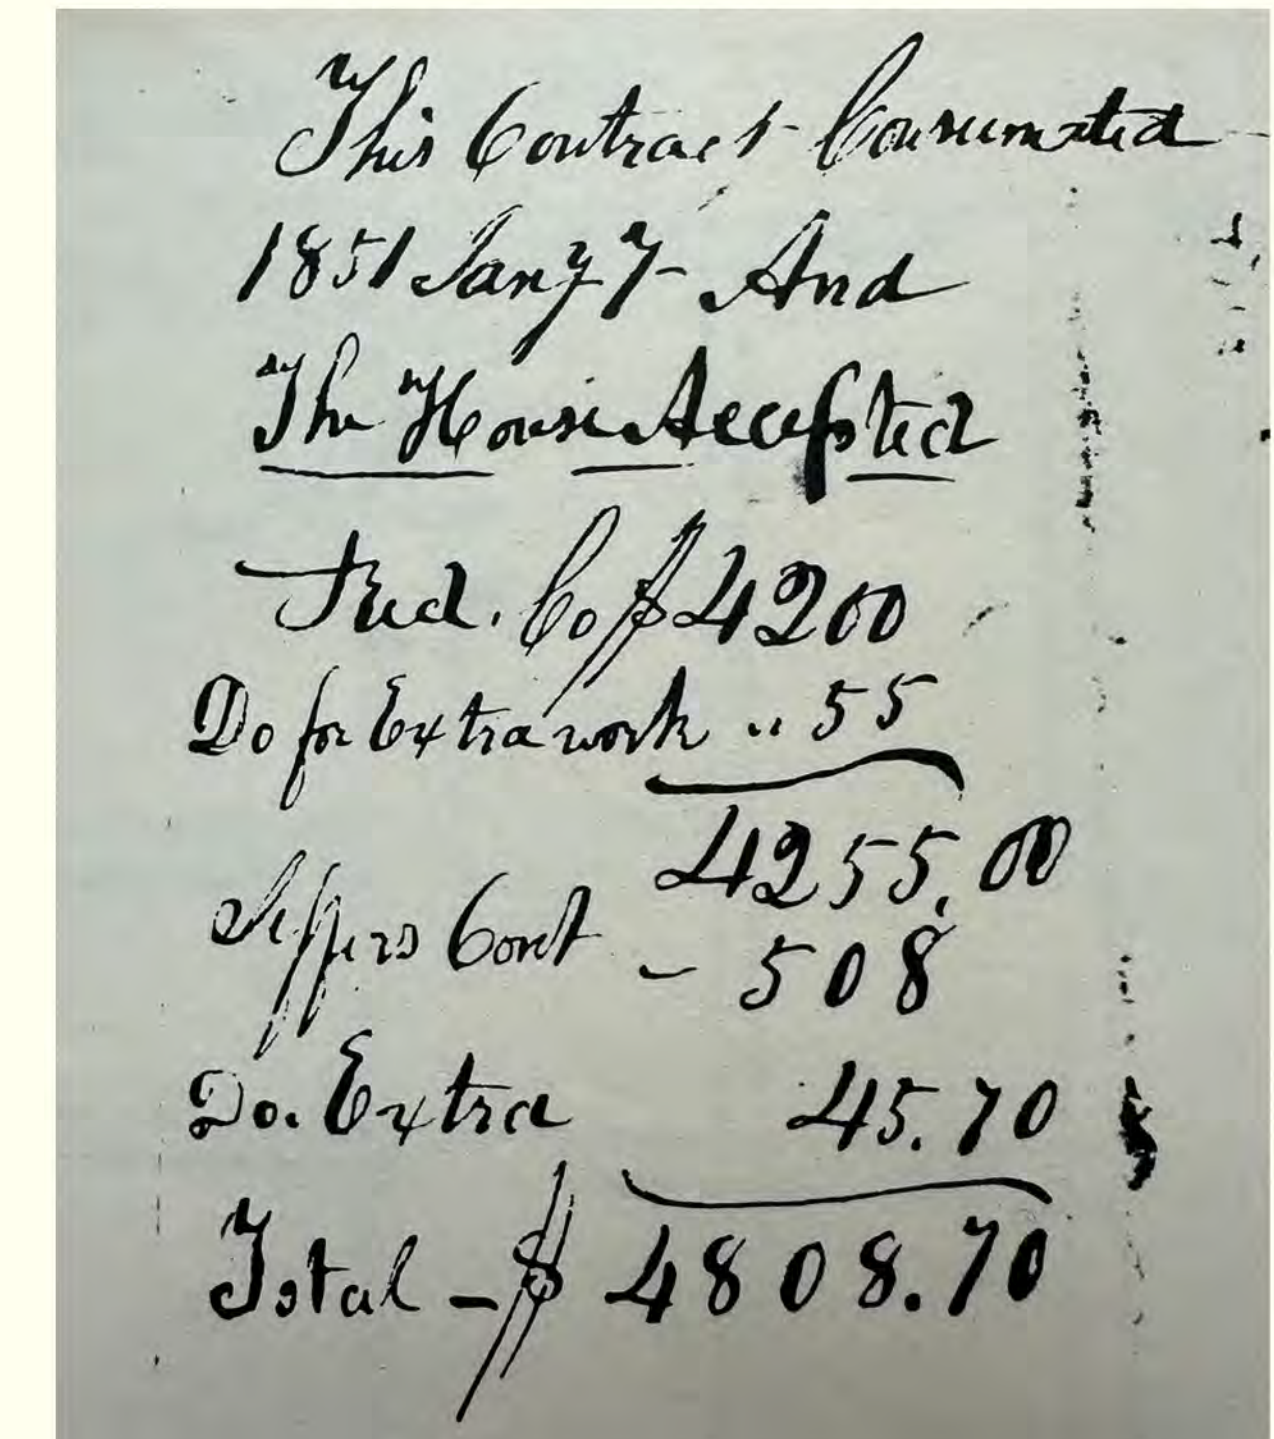 This Contract Consumated
1851 Jany 7 And
The House Accepted
Fred. Co $ 4200
Do for Extra work " 55
4255.00
Jeffers Cont - 508
Do. Extra 45.70
Total - $ 4808.70